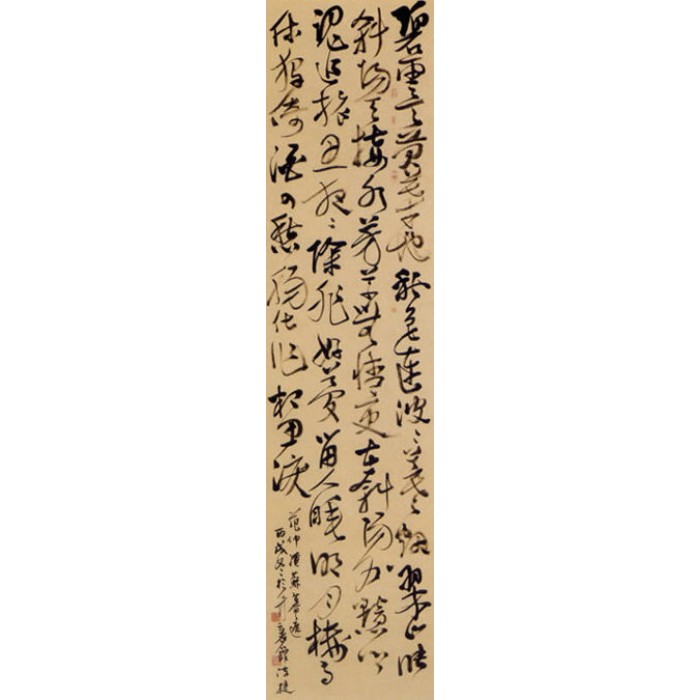 碧雲天黄葉地秋色連波〻上寒煙翠山映
斜陽天接水芳草無情更在斜陽外黯鄉
魂追旅思夜〻除非好夢留人睡明月樓高
休獨倚酒入愁腸化作相思淚
范仲淹蘇幕遮
丙戌冬於